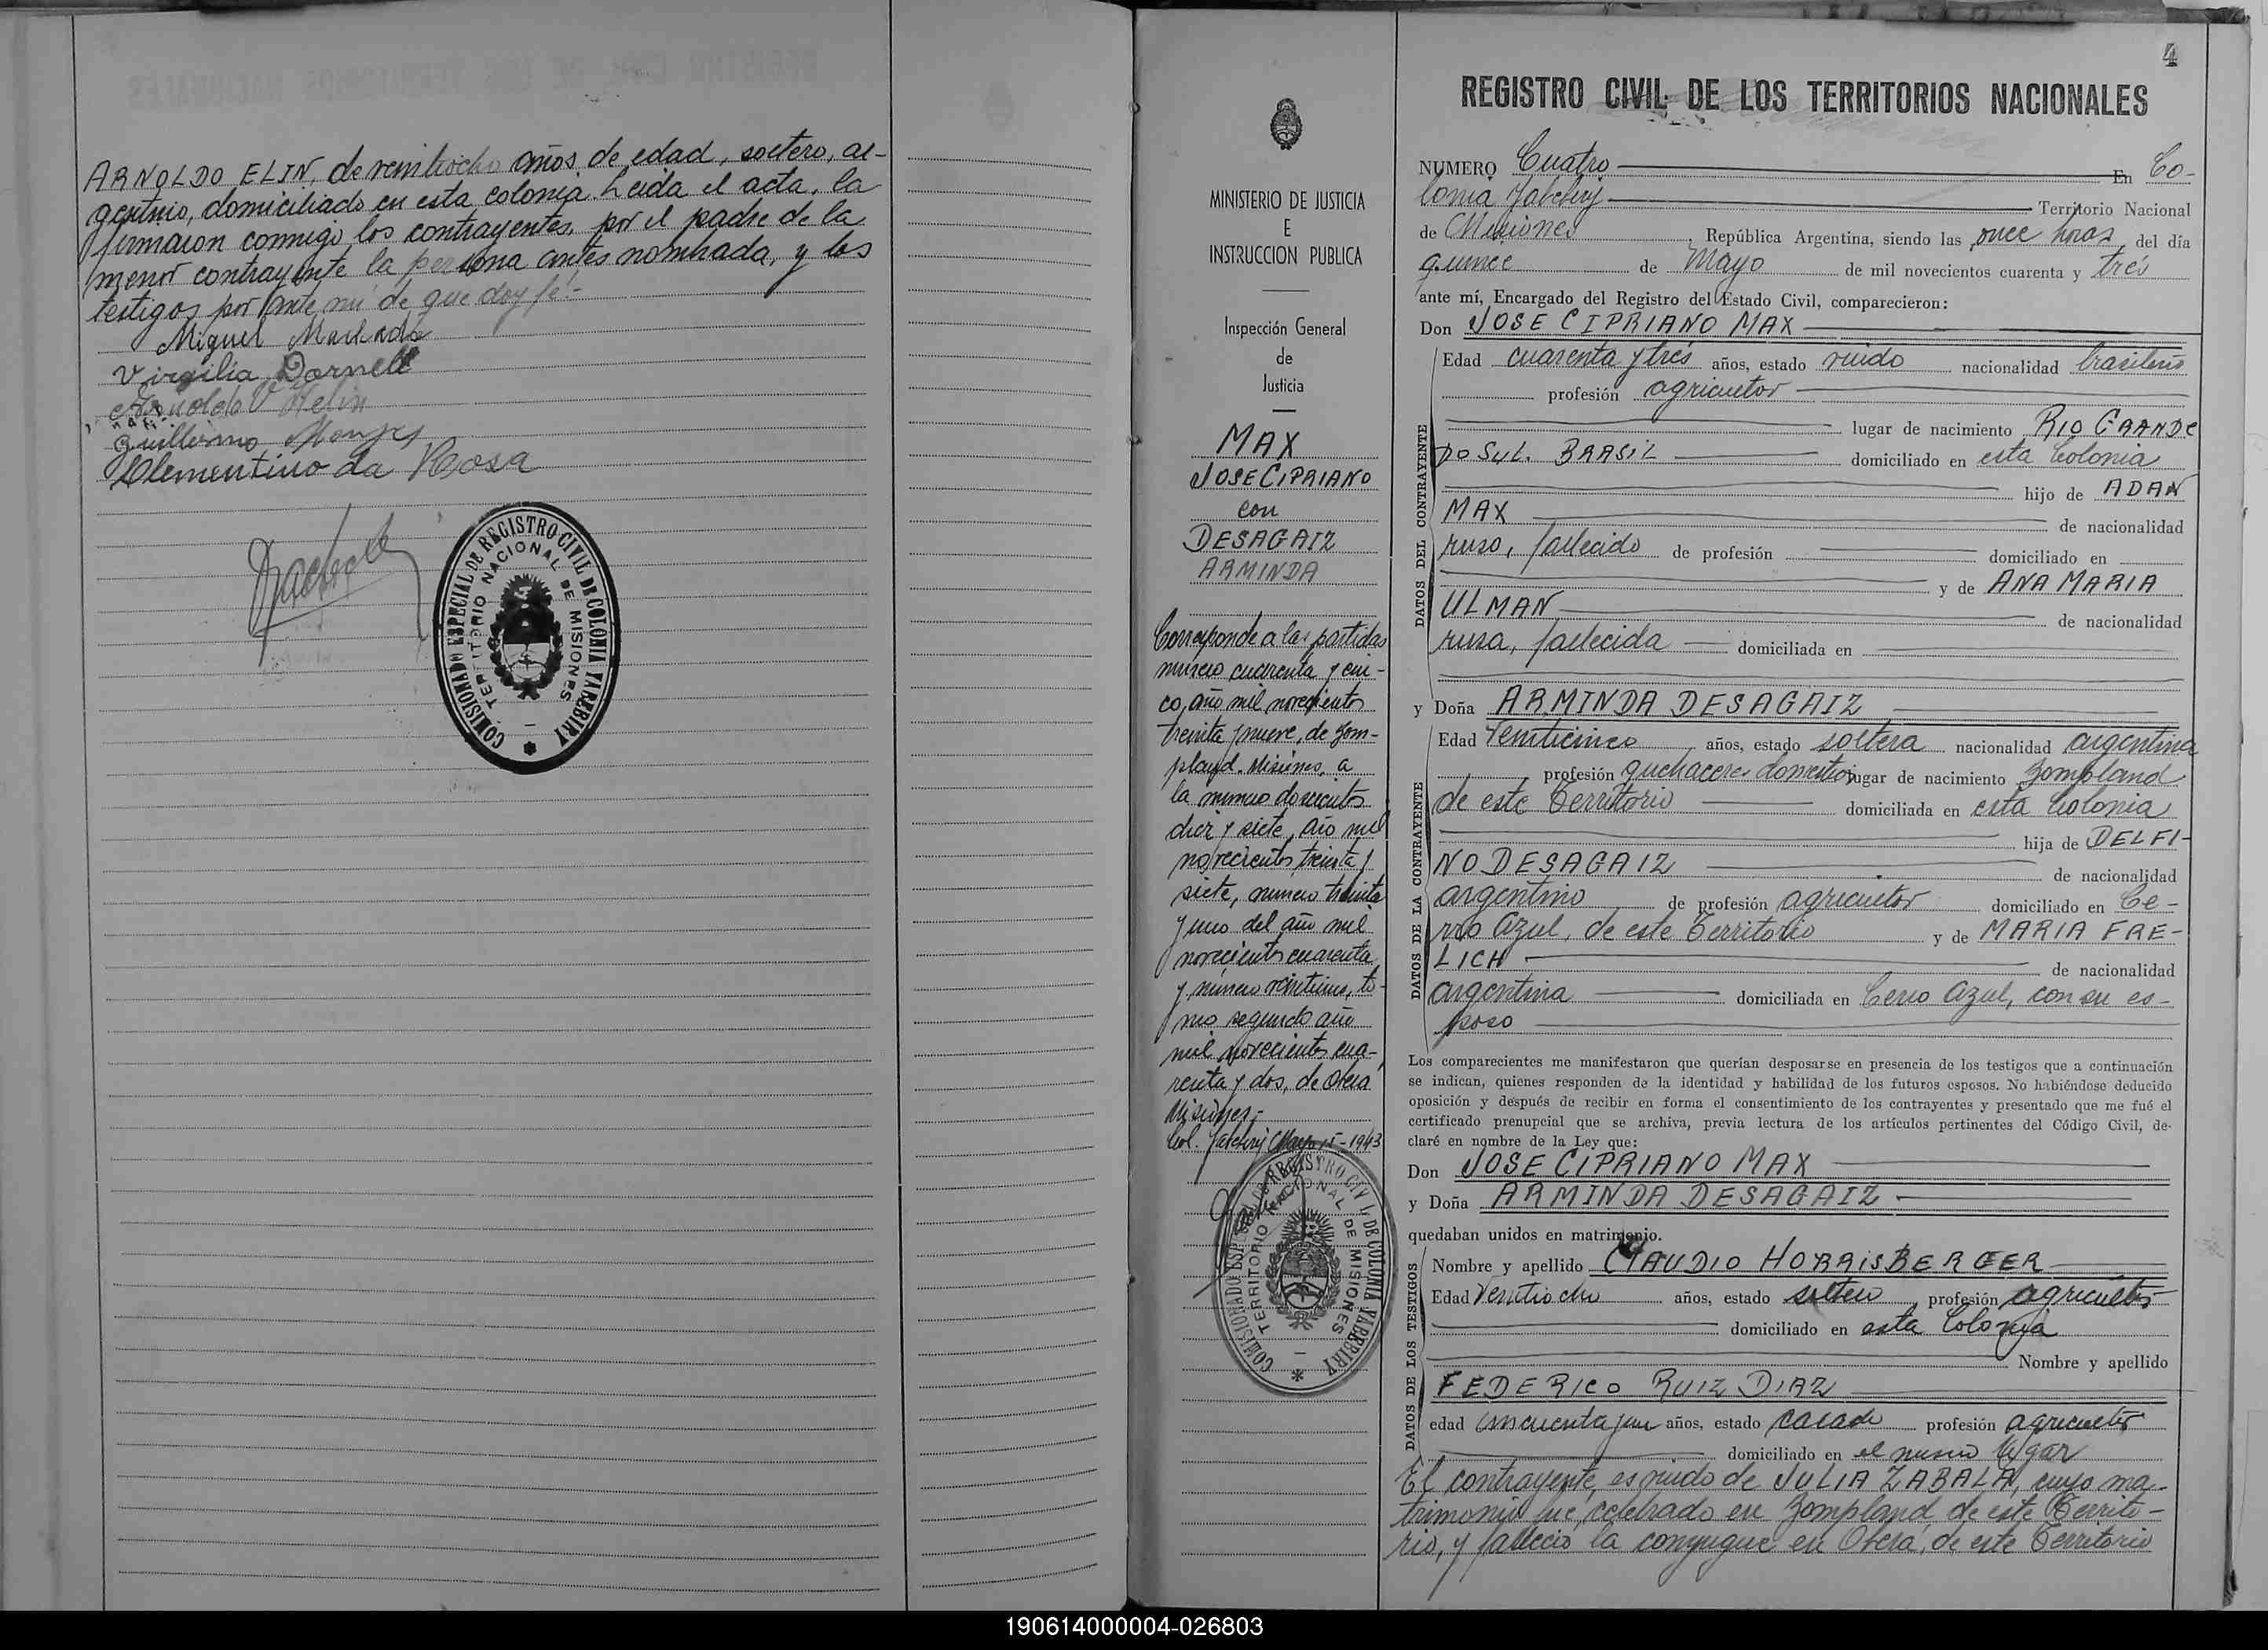 ARNOLDO ELIN, de veintiocho años de edad, soltero, ar-
gentino, domiciliado en esta colonia. Leida el acta, la
firmaron conmigo los contrayentes, por el padre de la
menor contrayente la persona antes nombrada, y los
testigos por ante mí de que doy fé.-
Miguel Machado
Virgilia Dornell
Arnoldo Velin
Guillermo
Clementino da Rosa
COMISIONADO ESPECIAL DE REGISTRO CIVIL DE COLONIA YABEBIRY
TERRITORIO NACIONAL DE MISIONES
MINISTERIO DE JUSTICIA
E
INSTRUCCION PUBLICA
Inspección General
de
Justicia
MAX
JOSE CIPRIANO
con
DESAGAIZ
ARMINDA
Corresponde a las partidas
número cuarenta y cin-
co, año mil novecientos
treinta y nueve, de Bom-
pland. Misiones, a
la número doscientos
diez y siete, año mil
novecientos treinta y
siete, número treinta
y uno del año mil
novecientos cuarenta
y número veintiuno, to-
mo segundo año
mil novecientos cua-
renta y dos, de Oberá
Misiones.-
Col. Yabebirÿ Mayo 15-1943
COMISIONADO ESPECIAL DE REGISTRO CIVIL DE COLONIA YABEBIRY
TERRITORIO NACIONAL DE MISIONES
4
REGISTRO CIVIL DE LOS TERRITORIOS NACIONALES
NUMERO Cuatro En Co-
lonia Yabebirÿ Territorio Nacional
de Misiones República Argentina, siendo las once horas del día
quince de Mayo de mil novecientos cuarenta y trés
ante mí, Encargado del Registro del Estado Civil, comparecieron:
Don JOSE CIPRIANO MAX
DATOS DEL CONTRAYENTE
Edad cuarenta y trés años, estado viudo nacionalidad brasileño
profesión agricultor
lugar de nacimiento RIO GRANDE
DO SUL. BRASIL domiciliado en esta Colonia
hijo de ADAN
MAX de nacionalidad
ruso, fallecido de profesión domiciliado en
y de ANA MARIA
ULMAN de nacionalidad
rusa, fallecida domiciliada en
y Doña ARMINDA DESAGAIZ
DATOS DE LA CONTRAYENTE
Edad Veinticinco años, estado soltera nacionalidad argentina
profesión quehaceres domesticos lugar de nacimiento Bompland
de este Territorio domiciliada en esta Colonia
hija de DELFI-
NO DESAGAIZ de nacionalidad
argentino de profesión agricultor domiciliado en Ce-
rro Azul, de este Territorio y de MARIA FRE-
LICH de nacionalidad
argentina domiciliada en Cerro Azul, con su es-
poso
Los comparecientes me manifestaron que querían desposarse en presencia de los testigos que a continuación
se indican, quienes responden de la identidad y habilidad de los futuros esposos. No habiéndose deducido
oposición y después de recibir en forma el consentimiento de los contrayentes y presentado que me fué el
certificado prenupcial que se archiva, previa lectura de los artículos pertinentes del Código Civil, de-
claré en nombre de la Ley que:
Don JOSE CIPRIANO MAX
y Doña ARMINDA DESAGAIZ
quedaban unidos en matrimonio.
DATOS DE LOS TESTIGOS
Nombre y apellido CLAUDIO HORRISBERGER
Edad Veintiocho años, estado soltero profesión agricultor
domiciliado en esta Colonia
Nombre y apellido
FEDERICO RUIZ DIAZ
edad cincuenta y un años, estado casado profesión agricultor
domiciliado en el mismo lugar
El contrayente, es viudo de JULIA ZABALA, cuyo ma-
trimonio fue celebrado en Bompland de este Territo-
rio, y falleció la conyugue en Oberá, de este Territorio
190614000004-026803